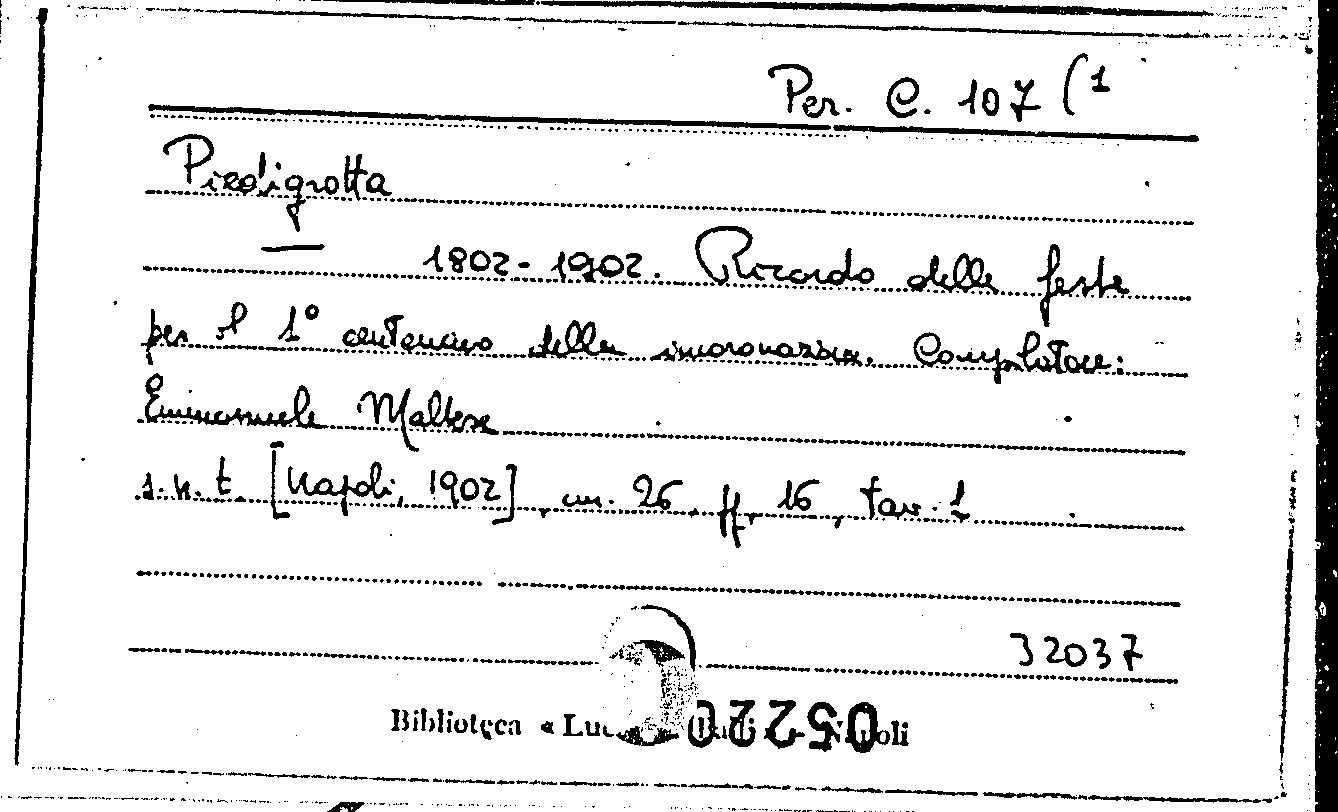 Per. C. 107 (1
Piedigrotta
— 1802-1902. Ricordo delle feste
per il 1° centenario della incoronazione. Compilatore:
Emmanuele Maltese
s.n.t. [Napoli, 1902], cm. 26, ff. 16, tav. 1
32037
Biblioteca « 
05220